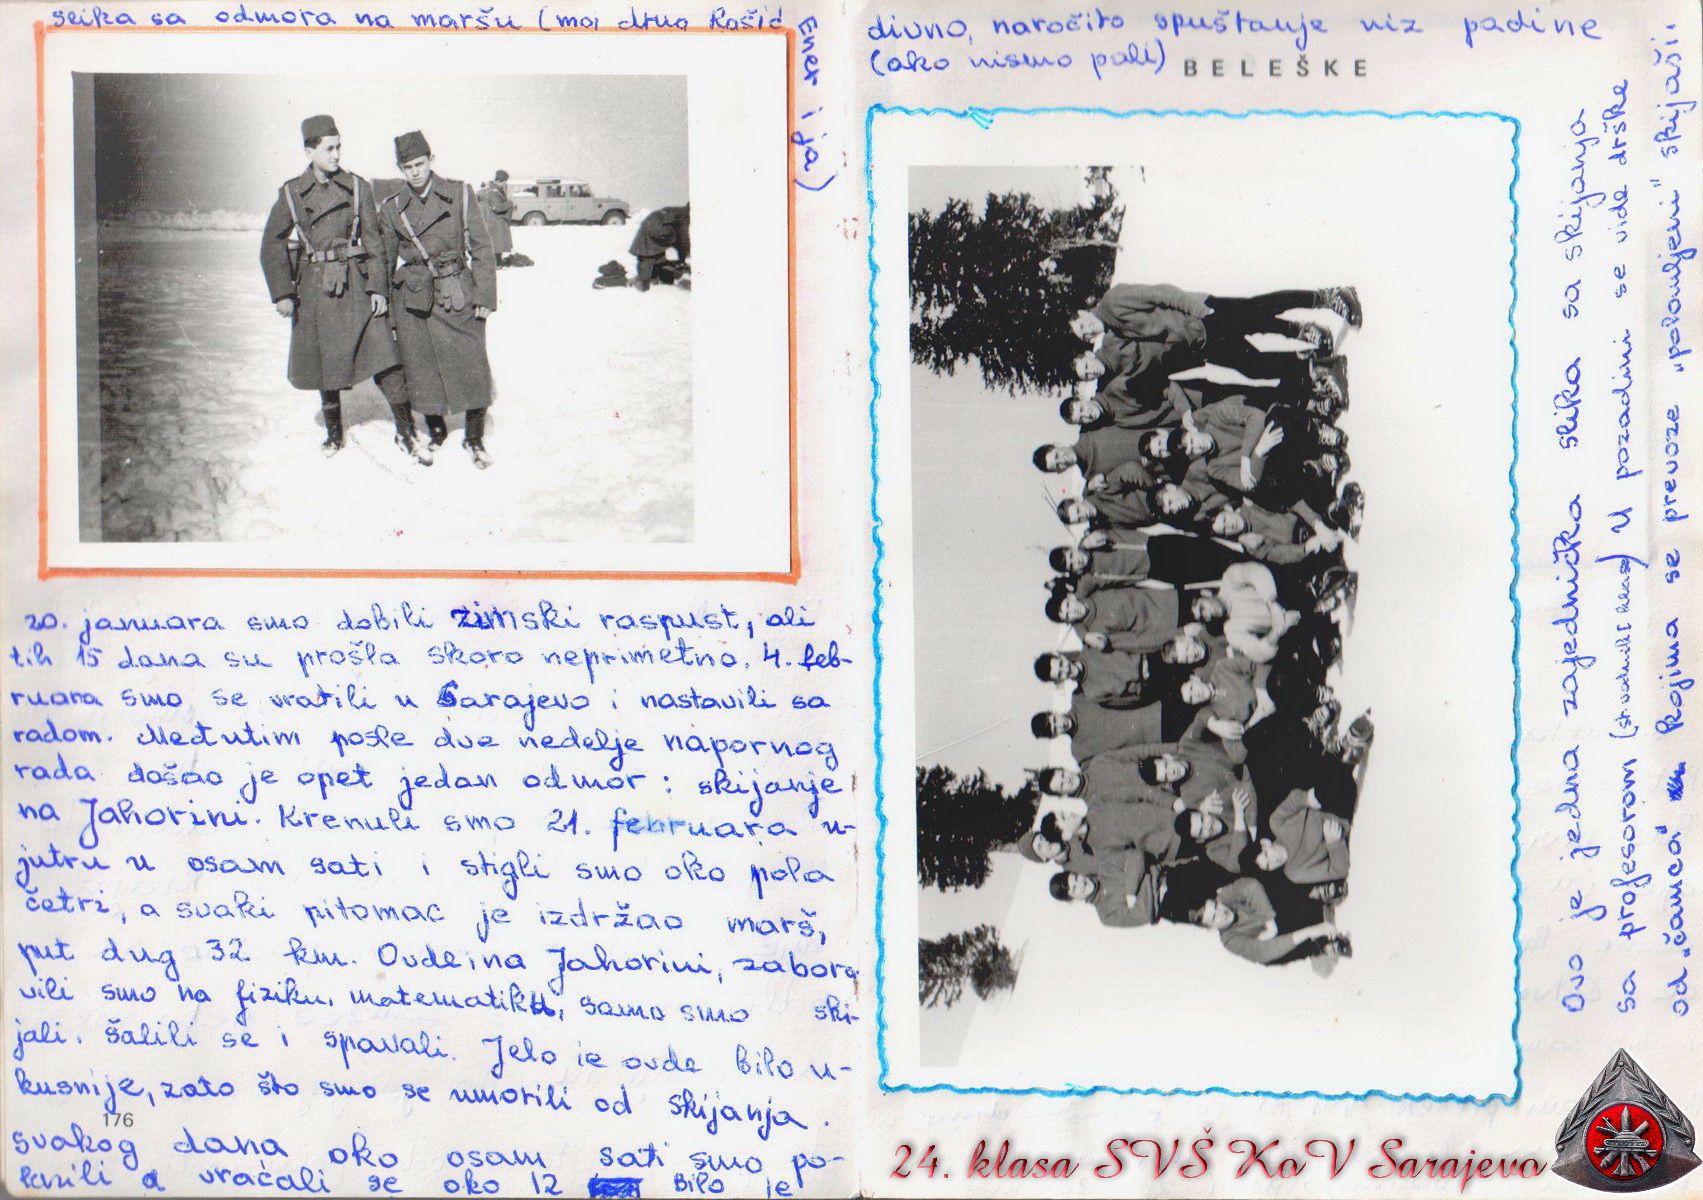 slika sa odmora na maršu (moj drug Rašić
Ener i ja)
20. januara smo dobili zimski raspust, ali
tih 15 dana su prošla skoro neprimetno. 4. feb-
ruara smo se vratili u Sarajevo i nastavili sa
radom. Međutim posle dve nedelje napornog
rada došao je opet jedan odmor: skijanje
na Jahorini. Krenuli smo 21. februara u-
jutru u osam sati i stigli smo oko pola
četri, a svaki pitomac je izdržao marš,
put dug 32 km. Ovde, na Jahorini, zabora-
vili smo na fiziku, matematiku, samo smo ski-
jali, šalili se i spavali. Jelo je ovde bilo u-
kusnije, zato što smo se umorili od skijanja.
176
svakog dana oko osam sati smo po-
lazili a vraćali se oko 12 bilo je
divno, naročito spuštanje niz padine
(ako nismo pali)
BELEŠKE
Ovo je jedna zajednička slika sa skijanja
sa profesorom (st. vodnik I klase) U pozadini se vide drške
od "čamca" kojima se prevoze "polomljeni" skijaši.
24. klasa SVŠ KoV Sarajevo